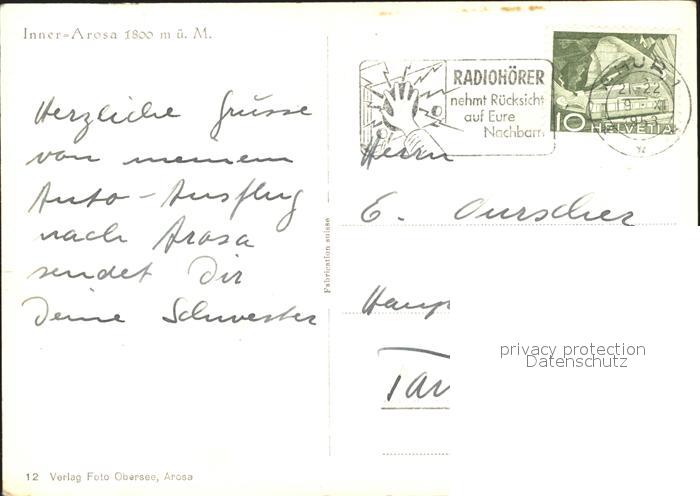 Inner-Arosa 1800 m ü. M.
RADIOHÖRER
nehmt Rücksicht
auf Eure
Nachbarn
CHUR 1
21-22
19. XI
1953
10 HELVETIA
Herzliche Grüsse
von meinem
Auto-Ausflug
nach Arosa
sendet Dir
Deine Schwester
Fabrication suisse
Herrn
E.
Haup
privacy protection
Datenschutz
12 Verlag Foto Obersee, Arosa